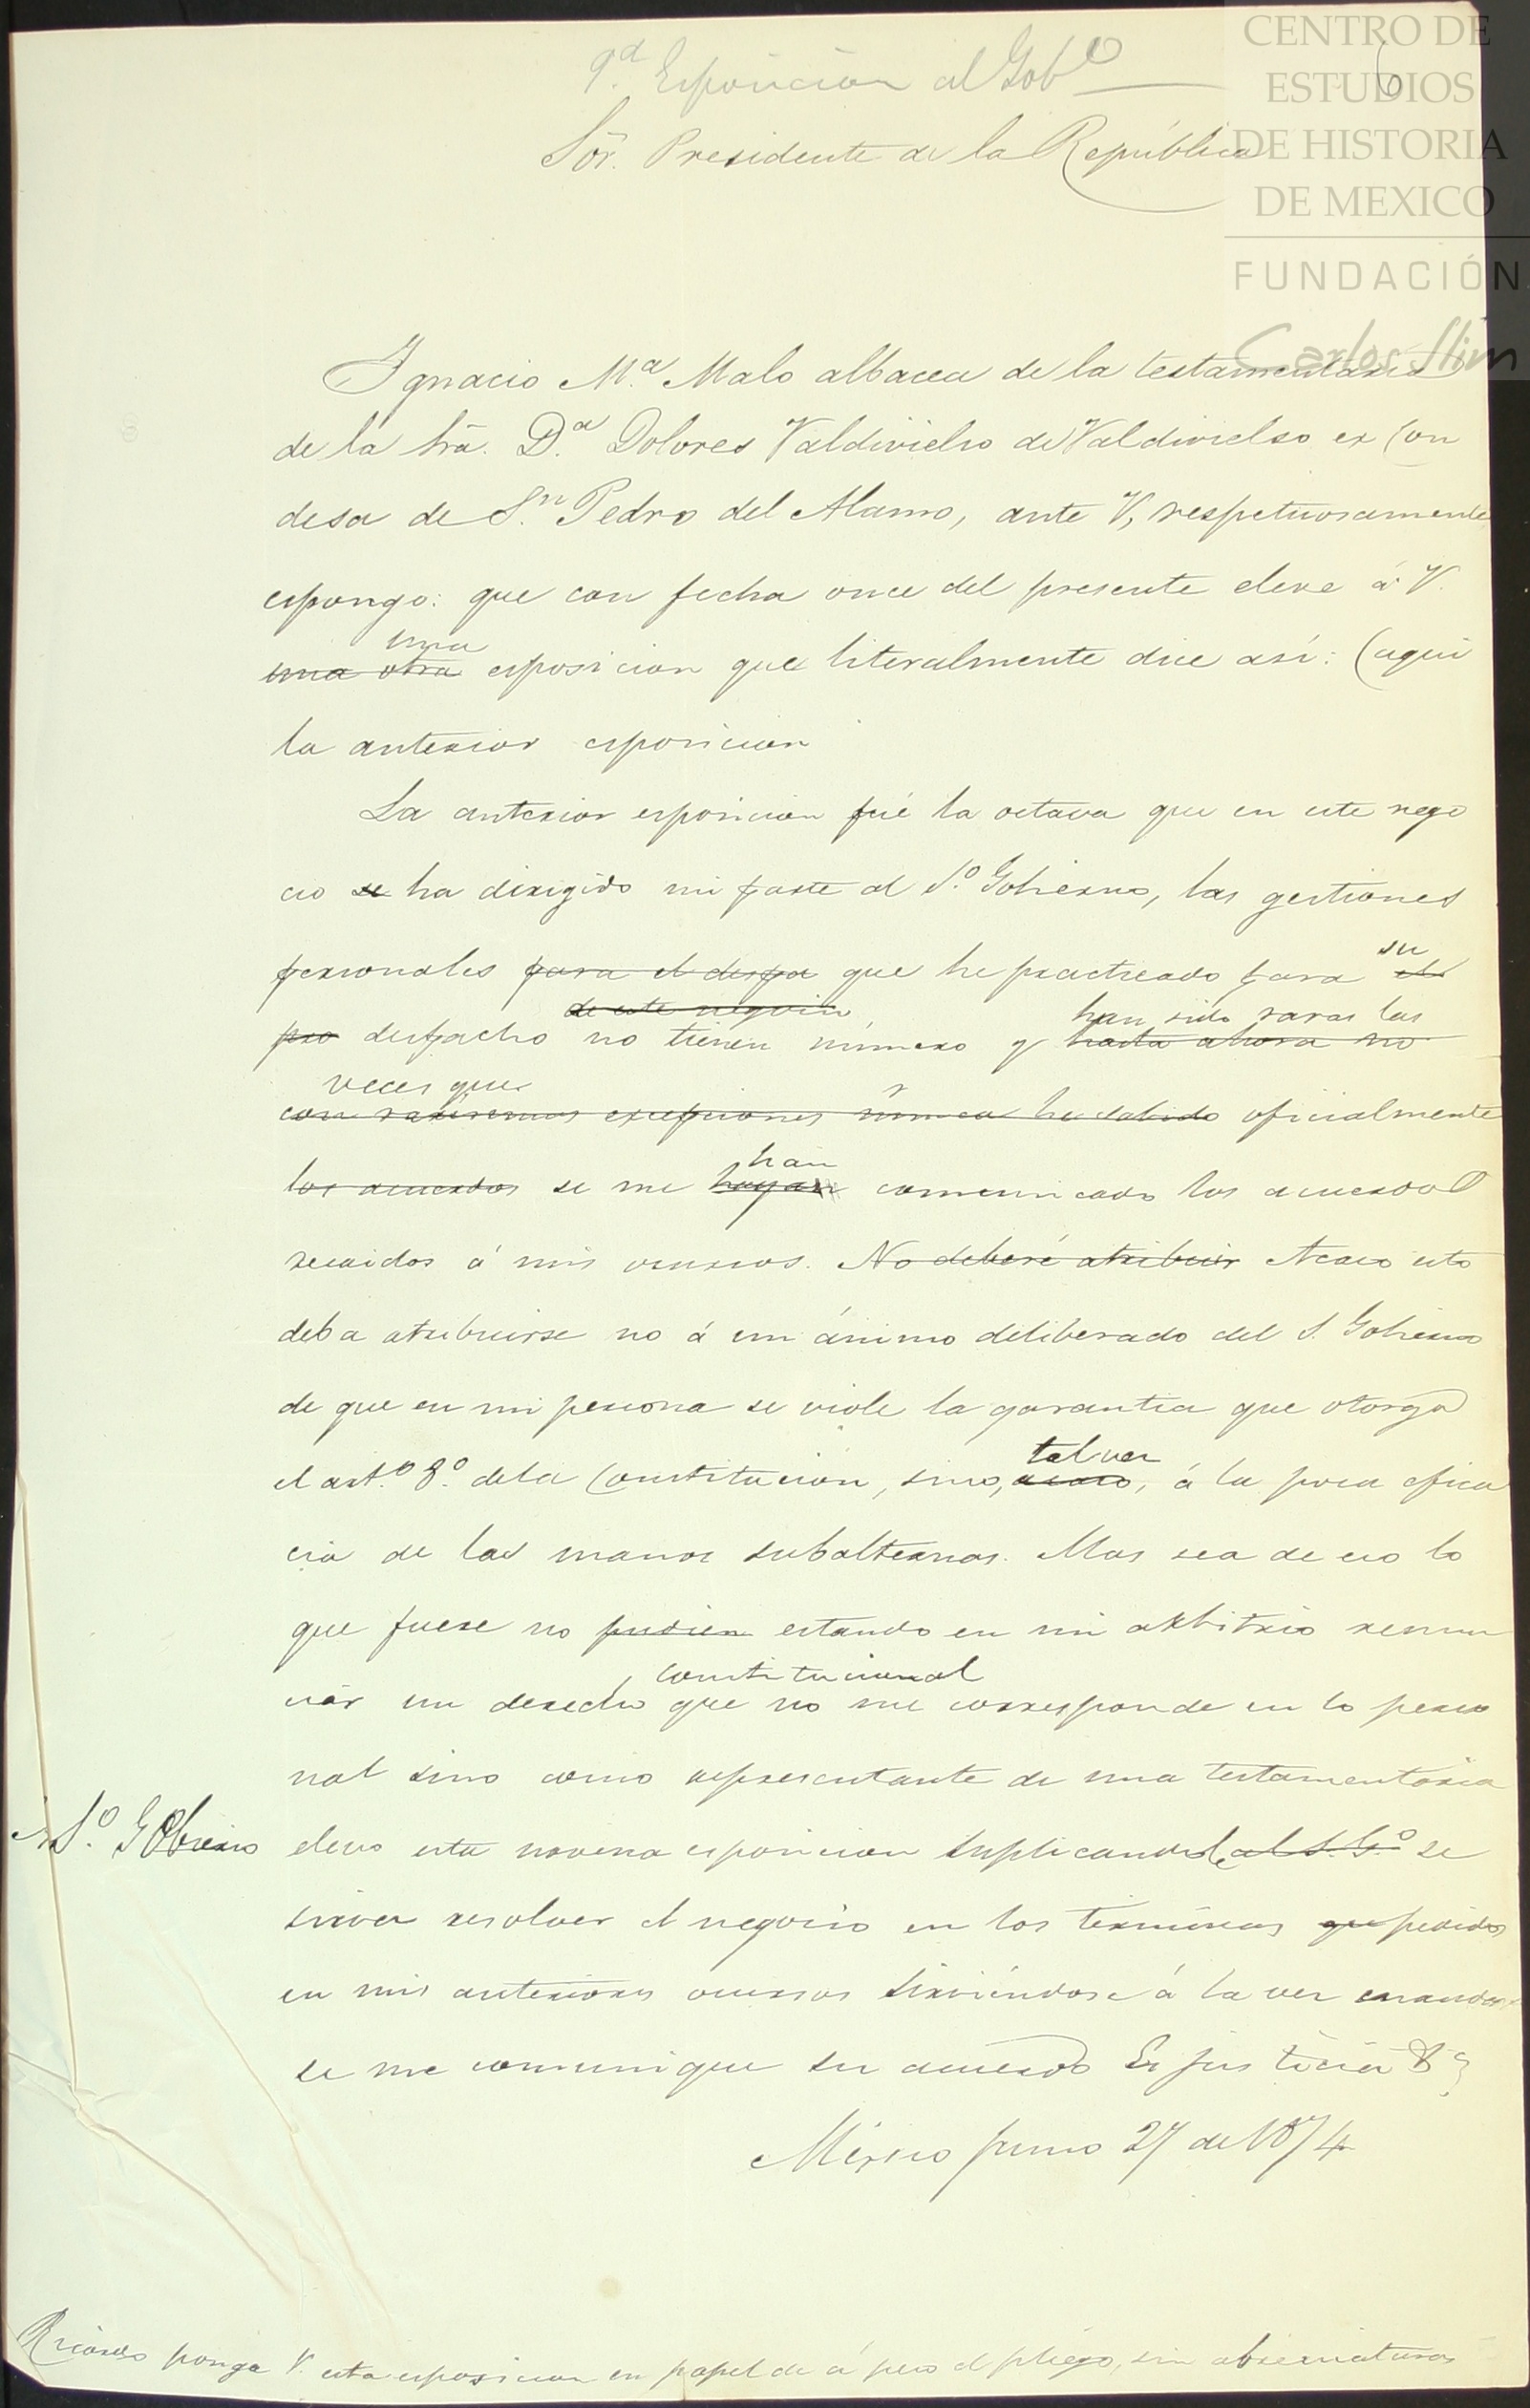 CENTRO DE
ESTUDIOS
DE HISTORIA
DE MEXICO
FUNDACIÓN
Carlos Slim
6
9.ª Esposicion al Gobº
Sõr. Presidente de la República
Ignacio M.ª Malo albacea de la testamentaria
de la Srã. D.ª Dolores Valdivielso de Valdivielso ex Con
desa de S.n Pedro del Alamo, ante V, respetuosamente
espongo: que con fecha once del presente eleve á V.
una
una otra esposicion que literalmente dice así: (aqui
la anterior esposicion
La anterior esposicion fué la octava que en este nego
cio se ha dirigido mi parte al S.º Gobierno, las gestiones
su
personales para el despa que he practicado para el
de este negocio han sido raras las
pro despacho no tienen número y hasta ahora no
veces que
con rarisimas excepciones nunca he sabido oficialmente
han
los acuerdos se me hayan comunicado los acuerdos
recaidos á mis ocursos. No deberé atribuir Acaso esto
deba atribuirse no á un ánimo deliberado del S. Gobierno
de que en mi persona se viole la garantia que otorga
tal vez
el art.º 8.º de la Constitucion, sino, acaso, á la poca efica
cia de las manos subalternas. Mas sea de eso lo
que fuere no pudien estando en mi arbitrio renun
constitucional
ciar un derecho que no me corresponde en lo perso
nal sino como representante de una testamentaria
S.º Gobierno elevo esta novena esposicion suplicandole al S. G.º se
sirva resolver el negocio en los términos que pedidos
en mis anteriores ocursos sirviéndose á la vez mandar
se me comunique su acuerdo Es justicia &ª
México Junio 27 de 1874
Ricardo ponga V. esta esposicion en papel de á peso el pliego, sin abreviaturas